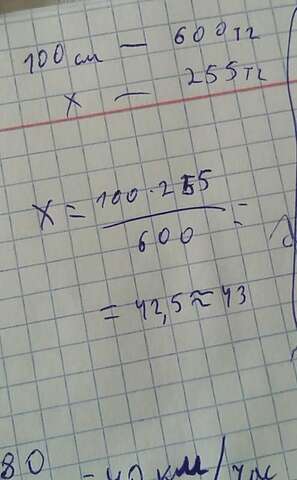 100 см — 600 тг
x — 255 тг
X = 100 · 255 / 600 =
= 42,5 ≈ 43
80 = 40 км/час